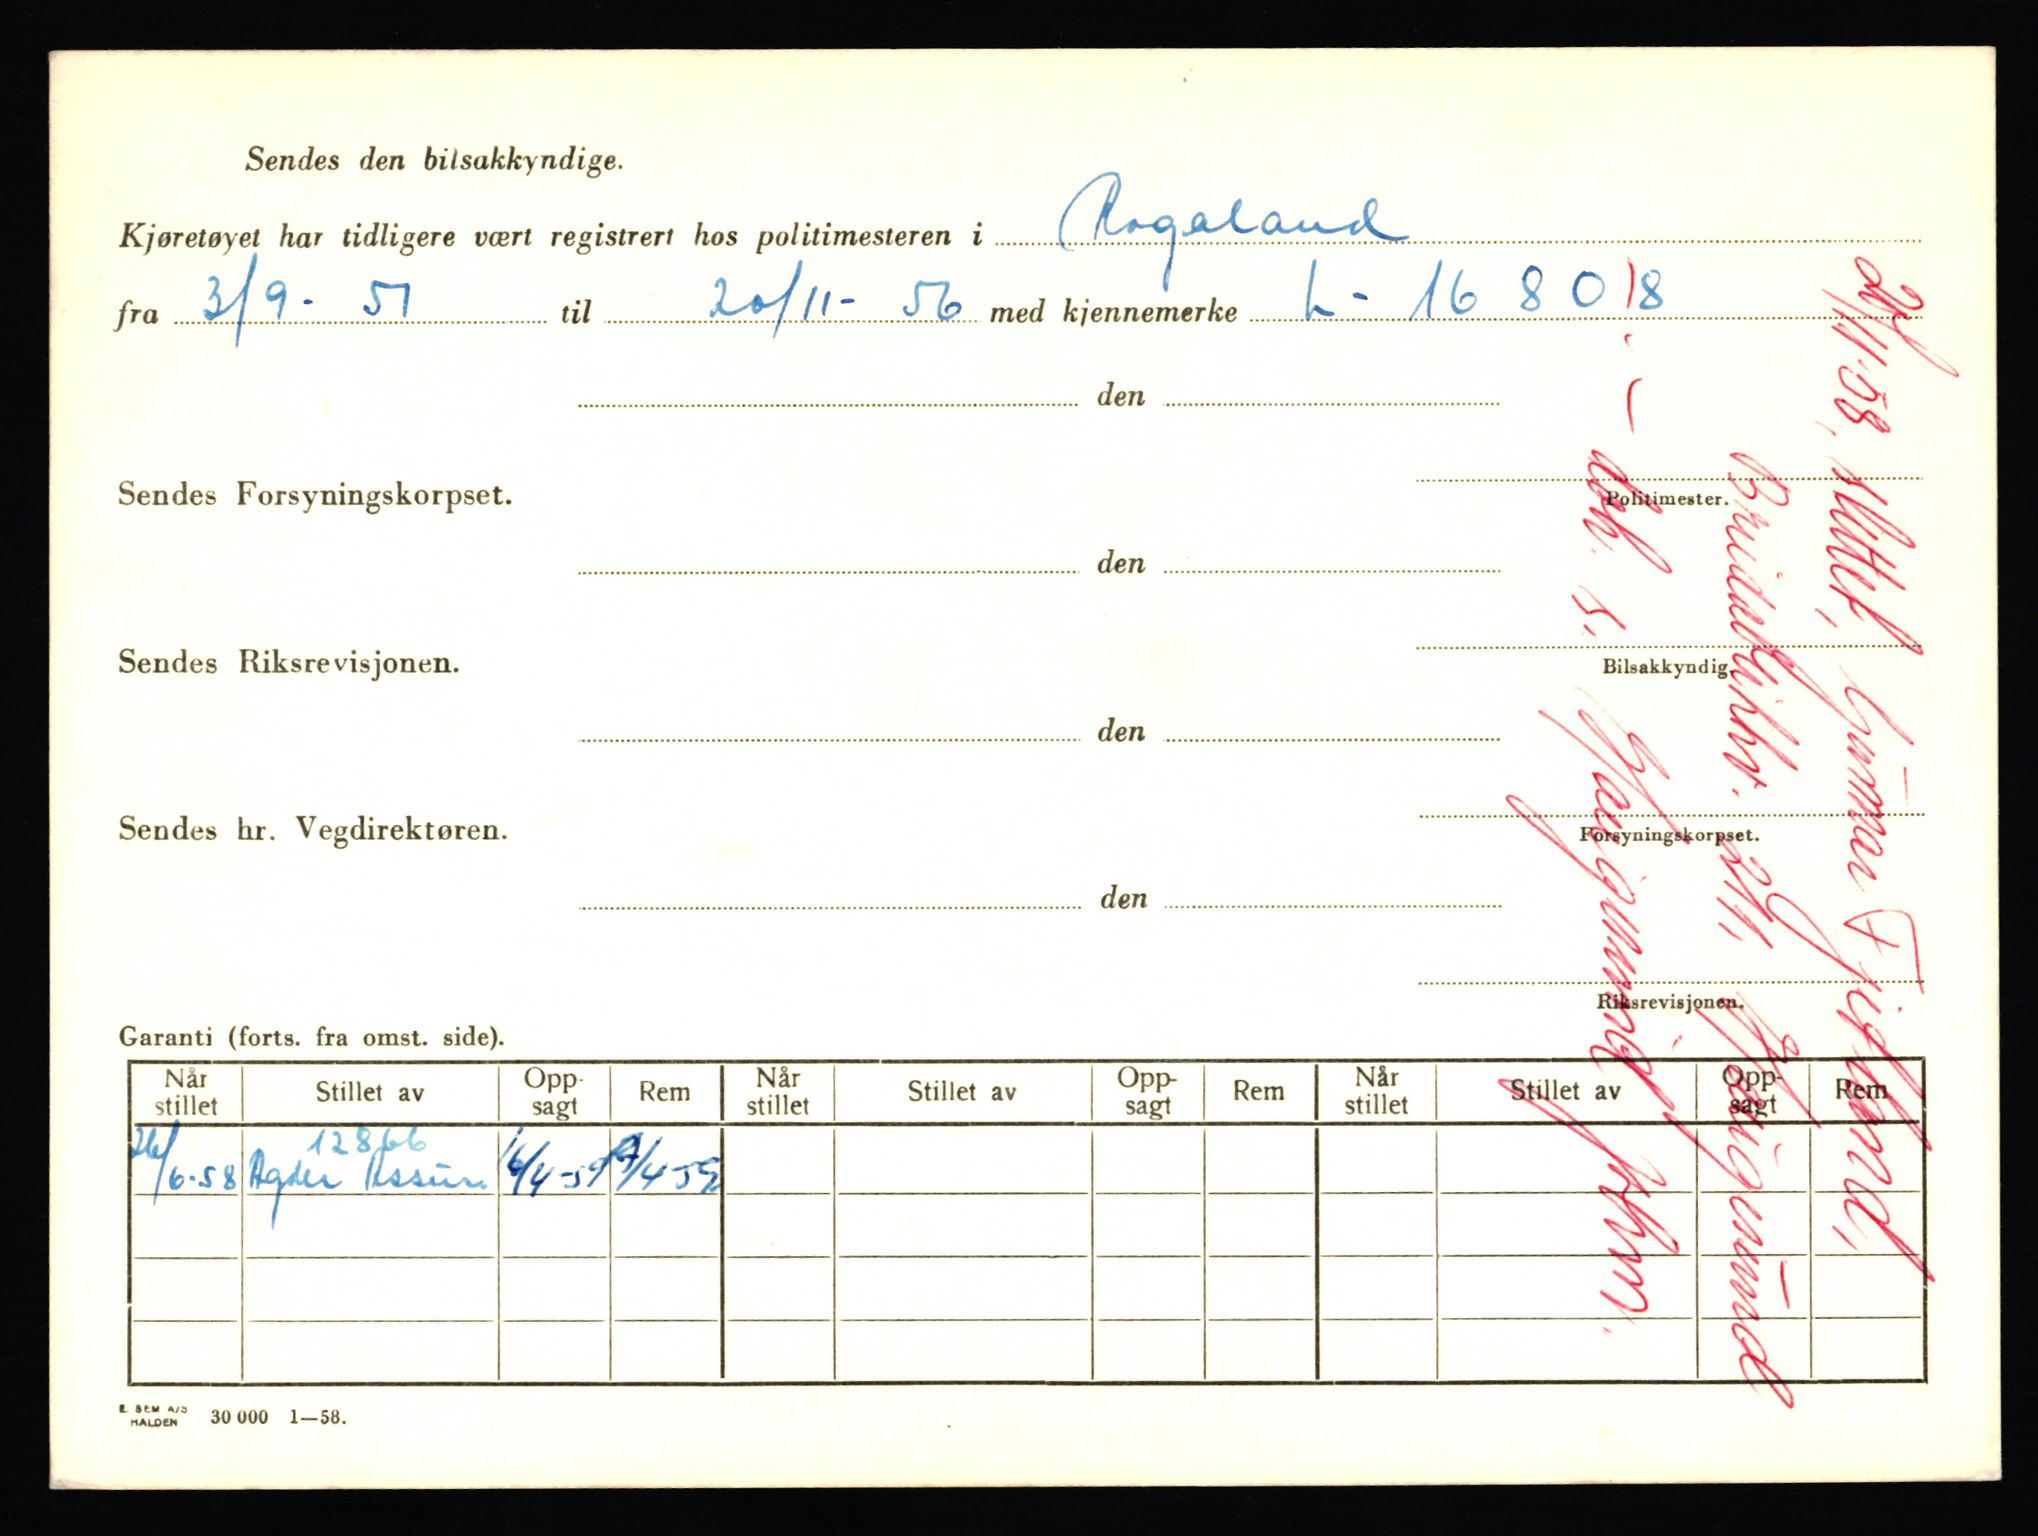 Sendes den bilsakkyndige.
Kjøretøyet har tidligere vært registrert hos politimesteren i Rogaland
fra 3/9- 51 til 20/11- 56 med kjennemerke L- 16 8018
den
Politimester.
Sendes Forsyningskorpset.
den
Bilsakkyndig.
Sendes Riksrevisjonen.
den
Forsyningskorpset.
Sendes hr. Vegdirektøren.
den
Riksrevisjonen.
Garanti (forts. fra omst. side).
Når stillet Stillet av Opp-sagt Rem Når stillet Stillet av Opp-sagt Rem Når stillet Stillet av Opp-sagt Rem
12866
26/6-58 Agder Assur. 16/4-59 /4-59
E. SEM A/S HALDEN 30 000 1—58.
/11-58, slettet, Gunnar Fidjeland,
Haugesund
- dok. s.